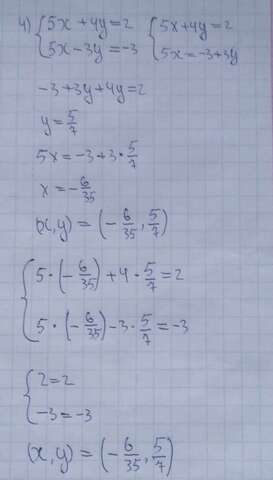 4) { 5x + 4y = 2 { 5x + 4y = 2
5x - 3y = -3 5x = -3 + 3y
-3 + 3y + 4y = 2
y = 5/7
5x = -3 + 3 · 5/7
x = - 6/35
(x, y) = (- 6/35, 5/7)
{ 5 · (- 6/35) + 4 · 5/7 = 2
5 · (- 6/35) - 3 · 5/7 = -3
{ 2 = 2
-3 = -3
(x, y) = (- 6/35, 5/7)